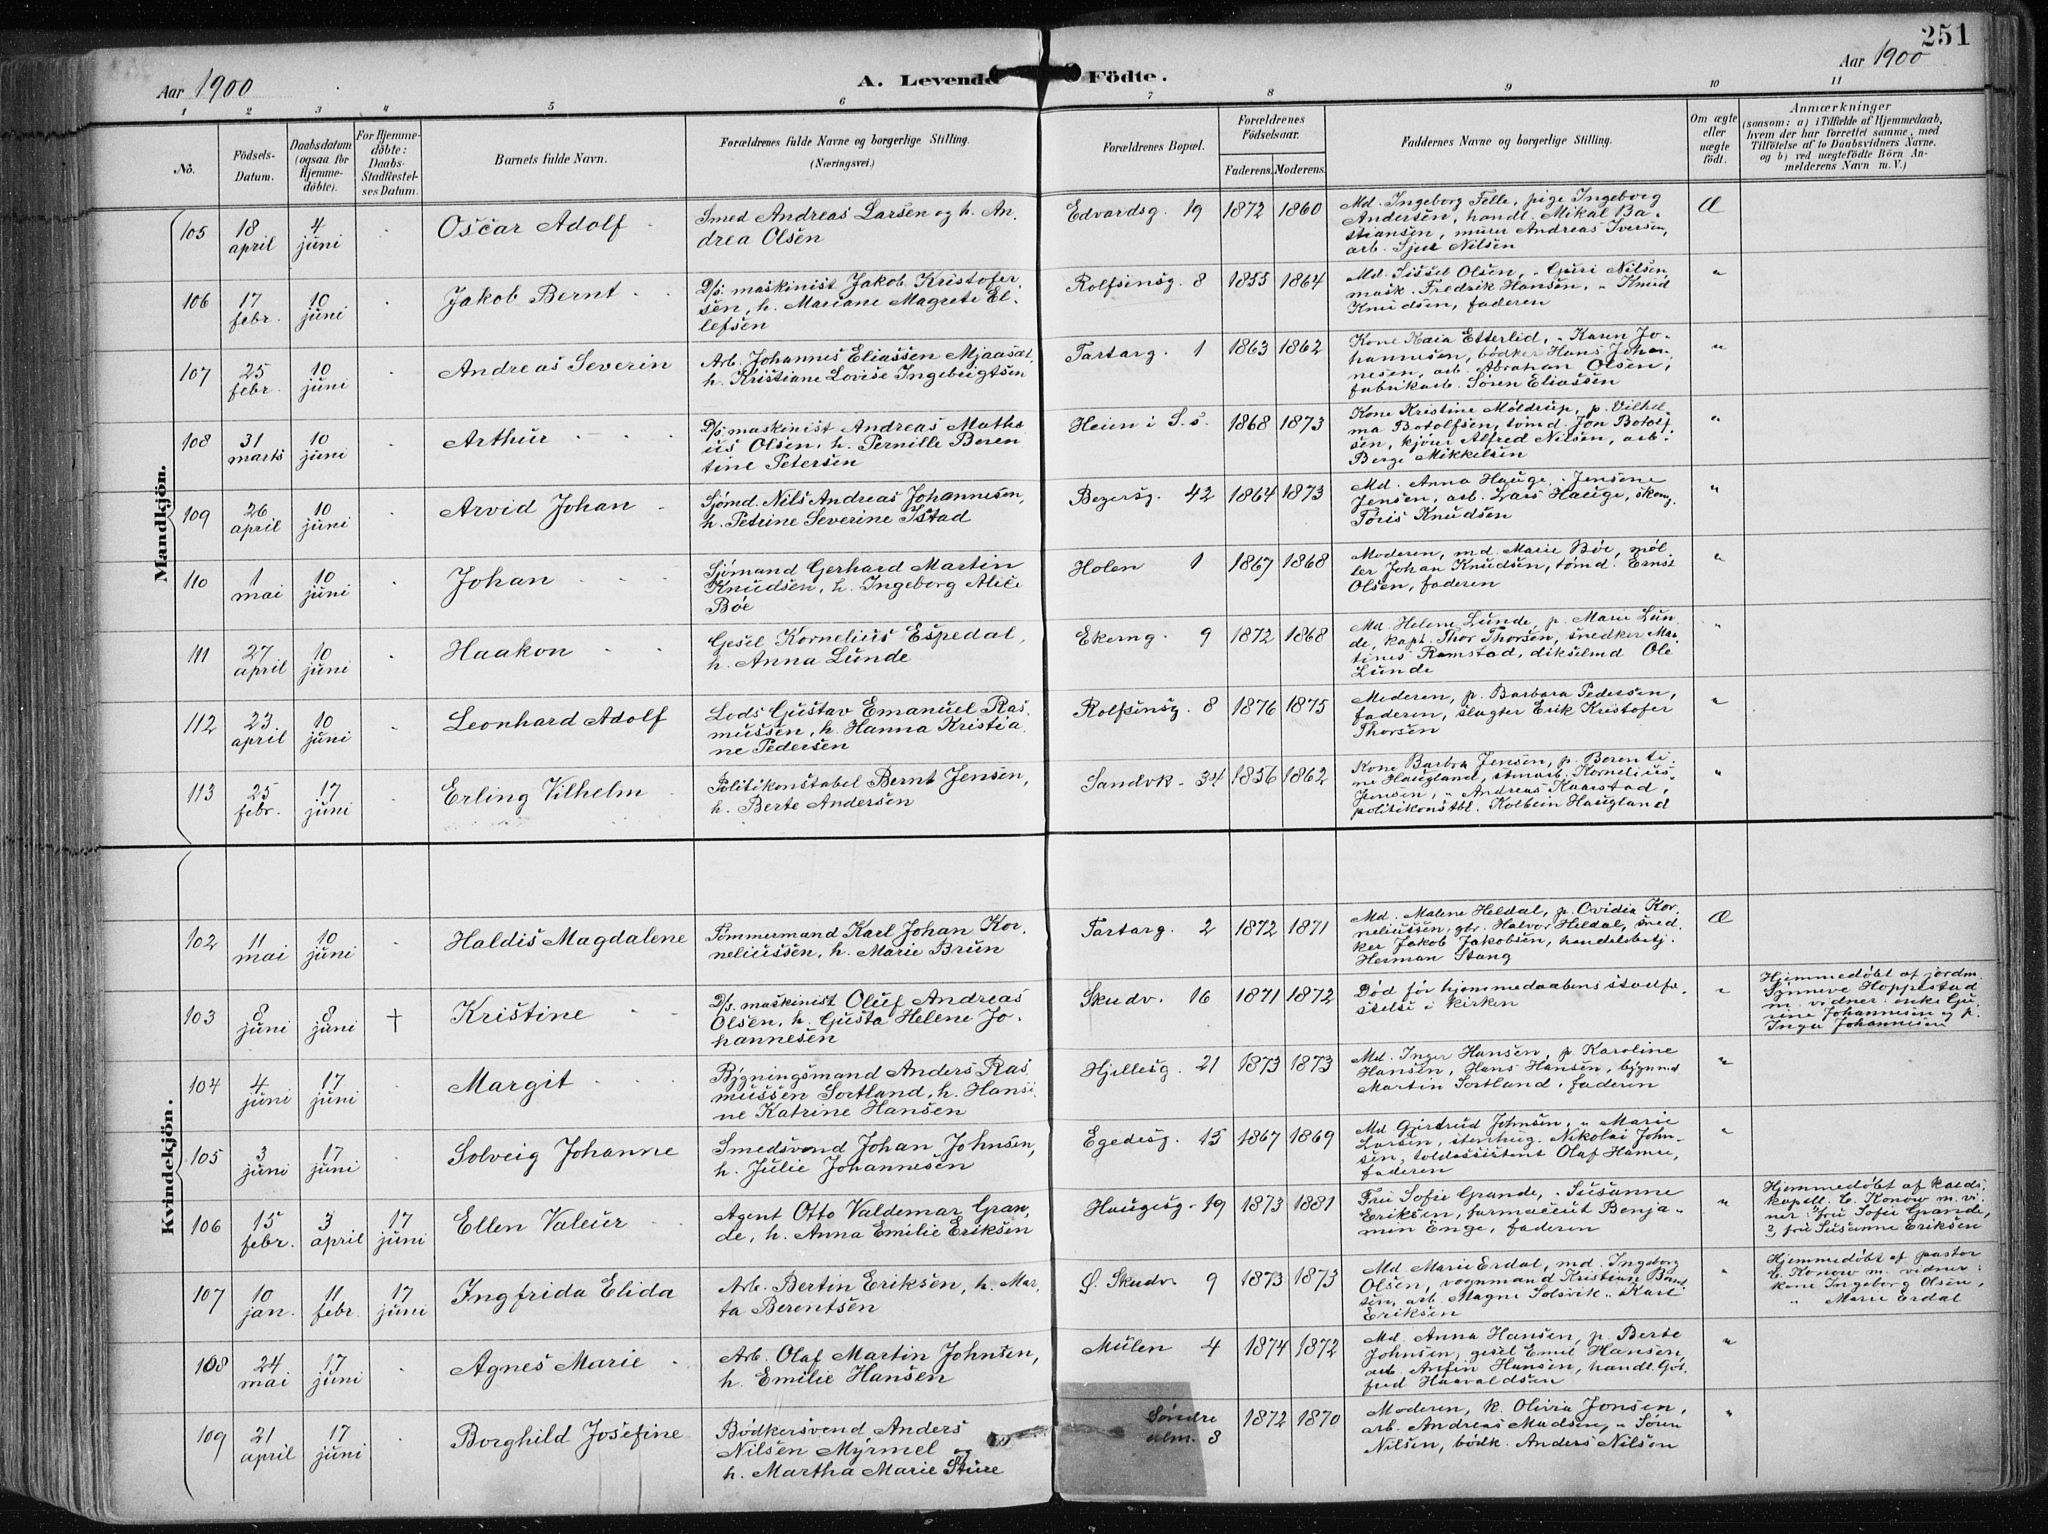 251
Aar 1900
A. Levende Födte.
Aar 1900
1 2 3 4 5 6 7 8 9 10 11
No.
Födsels-Datum.
Daabsdatum (ogsaa for Hjemme-döbte).
For Hjemme-döbte: Daabs-Stadfæstel-ses Datum.
Barnets fulde Navn.
Forældrenes fulde Navne og borgerlige Stilling.
(Næringsvei.)
Forældrenes Bopæl.
Forældrenes Födselsaar.
Faderens. Moderens.
Faddernes Navne og borgerlige Stilling.
Om ægte eller uægte födt.
Anmærkninger
(saasom: a) i Tilfælde af Hjemmedaab,
hvem der har forrettet samme, med
Tilföielse af to Daabsvidners Navne,
og b) ved uægtefödte Börn An-
melderens Navn m. V.)
Mandkjön.
105 18 april 4 juni Oscar Adolf Smed Andreas Larsen og h. An-
drea Olsen Edvardsg. 19 1872 1860 Md. Ingeborg Felle, pige Ingeborg
Andersen, handl. Mikal Ba-
stiansen, murer Andreas Iversen,
arb. Sjur Nilsen Æ
106 17 febr. 10 juni Jakob Bernt D/s. maskinist Jakob Kristofer-
sen, h. Mariane Magrete El-
lefsen Rolfsinsg. 8 1855 1864 Md. Sissel Olsen, " Guri Nilsen,
mask. Fredrik Hansen, " Knud
Knudsen, faderen "
107 25 febr. 10 juni Andreas Severin Arb. Johannes Eliassen Mjaasæt,
h. Kristiane Lovise Ingebrigtsen Tartarg. 1 1863 1862 Kone Kaia Etterlid, " Karen Jo-
hannesen, bødker Hans Johan-
nesen, arb. Abraham Olsen,
fabrikarb. Søren Eliassen "
108 31 marts 10 juni Arthur D/s. maskinist Andreas Mathæ-
us Olsen, h. Pernille Beren
tine Petersen Heien i S. s. 1868 1873 Kone Kristine Møldrup, p. Vilhel-
ma Botolfsen, tømd. Jon Botolf-
sen, kjører Alfred Nilsen, arb.
Berge Mikkelsen "
109 26 april 10 juni Arvid Johan Sjømd. Nils Andreas Johannesen,
h. Petrine Severine Istad Bezersg. 42 1864 1873 Md. Anna Hauge, " Jensene
Jensen, arb. Lars Hauge, skom.
Tøris Knudsen "
110 1 mai 10 juni Johan Sjømand Gerhard Martin
Knudsen, h. Ingeborg Alice
Bøe Holen 1 1867 1868 Moderen, md. Marie Bøe, møl-
ler Johan Knudsen, tømd. Ernst
Olsen, faderen "
111 27 april 10 juni Haakon Gesel Kornelius Espedal,
h. Anna Lunde Ekerng. 9 1872 1868 Md. Helene Lunde, p. Marie Lun-
de, kapt. Thor Thorsen, snedker Mar-
tines Ramstad, dikselmd Ole
Lunde "
112 23 april 10 juni Leonhard Adolf Lods Gustav Emanuel Ras-
mussen, h. Hanna Kristia-
ne Pedersen Rolfsinsg. 8 1876 1875 Moderen, p. Barbara Pedersen,
faderen, slagter Erik Kristofer
Thorsen "
113 25 febr. 17 juni Erling Vilhelm Politikonstabel Bernt Jensen,
h. Berte Andersen Sandvk. 34 1856 1862 Kone Barbra Jensen, p. Berenti-
ne Haugland, stuarb. Kornelius
Jensen, " Andreas Kaarstad,
politikonstbl. Kolbein Haugland "
Kvindekjön.
102 11 mai 10 juni Haldis Magdalene Tømmermand Karl Johan Kor-
neliussen, h. Marie Brun Tartarg. 2 1872 1871 Md. Malene Heldal, p. Ovidia Kor-
neliussen, gbr. Halvor Heldal, sned-
ker Jakob Jakobsen, handelsbetj.
Herman Stang Æ
103 8 juni 8 juni † Kristine D/s. maskinist Oluf Andreas
Olsen, h. Gusta Helene Jo-
hannesen Skudv. 16 1871 1872 Død før hjemmedaabens stadfæ-
stelse i kirken " Hjemmedøbt af jordm.
Synneve Hoppestad
m. vidner: enke Gu-
rine Johannesen og p.
Inga Johannesen
104 4 juni 17 juni Margit Bygningsmand Anders Ras-
mussen Sortland, h. Hansi-
ne Katrine Hansen Hjellesg. 21 1873 1873 Md. Inger Hansen, p. Karoline
Hansen, Hans Hansen, bygnmd
Martin Sortland, faderen "
105 3 juni 17 juni Solveig Johanne Smedsvend Johan Johnsen,
h. Julie Johannesen Egedesg. 15 1867 1869 Md Gjertrud Johnsen, " Marie
Larsen, stenhug. Nikolai John-
sen, toldassistent Olaf Hamre,
faderen "
106 15 febr. 3 april 17 juni Ellen Valeur Agent Otto Valdemar Gran-
de, h. Anna Emilie Eriksen Haugesg. 19 1873 1881 Fru Sofie Grande, " Susanne
Eriksen, farmaceut Benja-
min Enge, faderen " Hjemmedøbt af
kapell. C. Konow m. vi-
ner: fru Sofie Grande,
fru Susanne Eriksen
107 10 jan. 11 febr. 17 juni Ingfrida Elida Arb. Bertin Eriksen, h. Mar-
ta Berentsen Ø. Skudv 9 1873 1873 Md Marie Erdal, md. Ingeborg
Olsen, vognmand Kristian
arb. Magne Solsvik " Karl
Eriksen " Hjemmedøbt af pastor
C. Konow m. vidner:
kone Ingeborg Olsen,
" Marie Erdal
108 24 mai 17 juni Agnes Marie Arb. Olaf Martin Johnsen,
h. Emilie Hansen Mülen 4 1874 1872 Md. Anna Hansen, p. Berte
Johnsen, gesel Emil Hansen,
arb. Arnfin Hansen, handl. Got-
fred Haavaldsen "
109 21 april 17 juni Borghild Josefine Bødkersvend Anders
Nilsen Myrmel og
h. Martha Marie Sture Søndre
alm. 3 1872 1870 Moderen, k. Olivia Jonsen,
arb. Andreas Madsen, " Søren
Nilsen, bødk. Anders Nilsen "